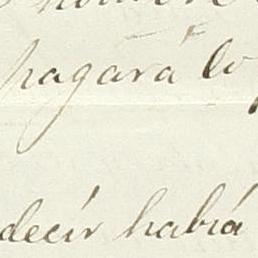 pagará lo
decir habia